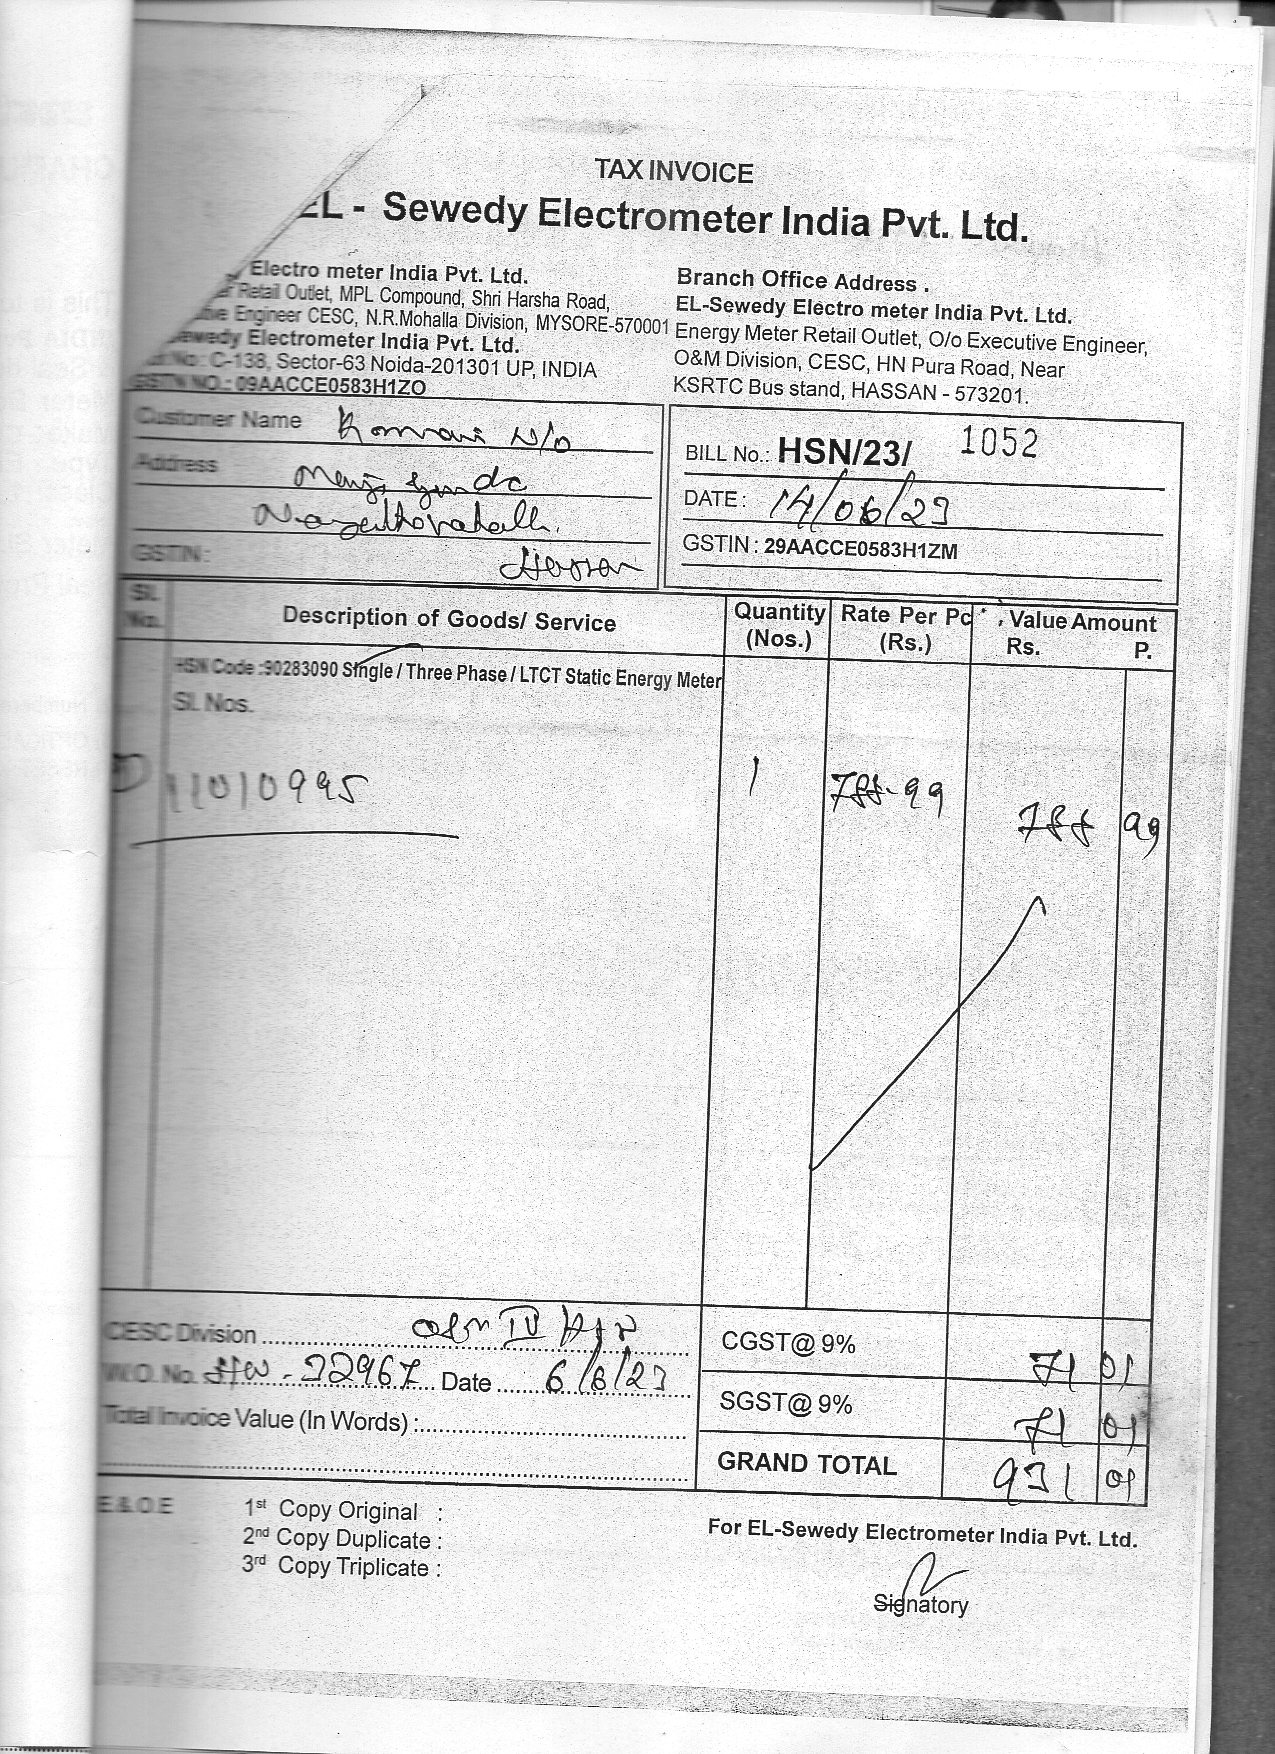 TAX INVOICE
EL - Sewedy Electrometer India Pvt. Ltd.
Electro meter India Pvt. Ltd.
Retail Outlet, MPL Compound, Shri Harsha Road,
Engineer CESC, N.R.Mohalla Division, MYSORE-570001
Sewedy Electrometer India Pvt. Ltd.
No : C-138, Sector-63 Noida-201301 UP, INDIA
GSTN NO. : 09AACCE0583H1ZO
Branch Office Address .
EL-Sewedy Electro meter India Pvt. Ltd.
Energy Meter Retail Outlet, O/o Executive Engineer,
O&M Division, CESC, HN Pura Road, Near
KSRTC Bus stand, HASSAN - 573201.
Customer Name
Address
GSTIN :
Hassan
BILL No.: HSN/23/ 1052
DATE : 14/06/23
GSTIN : 29AACCE0583H1ZM
Sl. No.
Description of Goods/ Service
Quantity (Nos.)
Rate Per Pc (Rs.)
Value Amount
Rs. P.
HSN Code :90283090 Single / Three Phase / LTCT Static Energy Meter
Sl. Nos.
11010995 1 788-99 788 99
CESC Division
W.O. No. 22967 Date 6/6/23
Total Invoice Value (In Words) :
CGST@ 9% 71 01
SGST@ 9% 71 01
GRAND TOTAL 931 01
E & O E
1st Copy Original :
2nd Copy Duplicate :
3rd Copy Triplicate :
For EL-Sewedy Electrometer India Pvt. Ltd.
Signatory